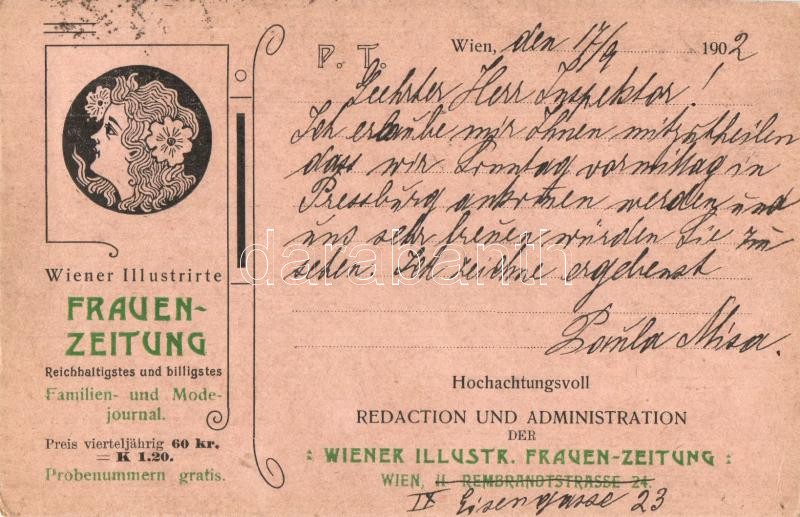 P. T.
Wien, den 17/9 1902
Geehrter Herr Inspektor!
Ich erlaube mir Ihnen mitzutheilen
dass wir Sonntag vormittag in
Pressburg ankommen werden und
uns sehr freuen würden Sie zu
sehen. Ich zeichne ergebenst
Paula Misa.
Hochachtungsvoll
REDACTION UND ADMINISTRATION
DER
: WIENER ILLUSTR. FRAUEN-ZEITUNG :
WIEN, II. REMBRANDTSTRASSE 24.
IX Eisengasse 23
Wiener Illustrirte
FRAUEN-
ZEITUNG
Reichhaltigstes und billigstes
Familien- und Mode-
journal.
Preis vierteljährig 60 kr.
= K 1.20.
Probenummern gratis.
darabanth